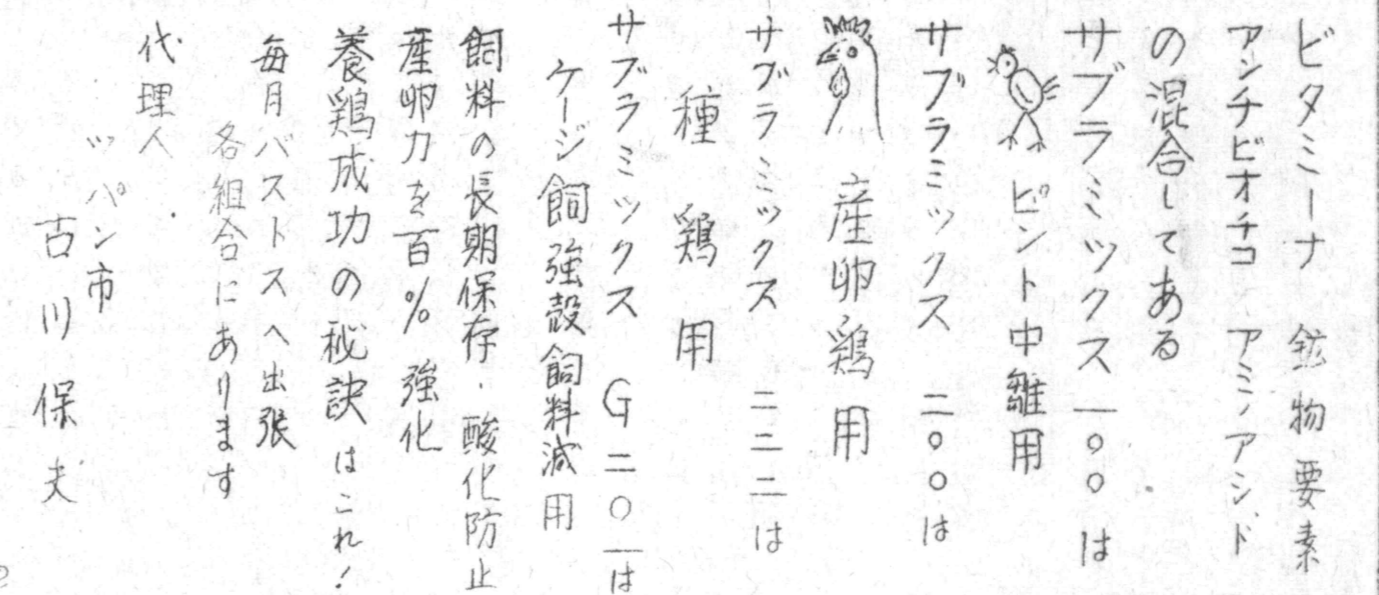 ビタミーナ 鉱物要素
アンチビオチコ アミノアシド
の混合してある
サブラミックス一〇〇は
ピント中雛用
サブラミックス二〇〇は
産卵鶏用
サブラミックス二二二は
種鶏用
サブラミックスG二〇一は
ケージ飼強殻飼料減用
飼料の長期保存.酸化防止
産卵力を百%強化
養鶏成功の秘訣はこれ!
毎月バストスへ出張
各組合にあります
代理人.
ツパン市
古川保夫